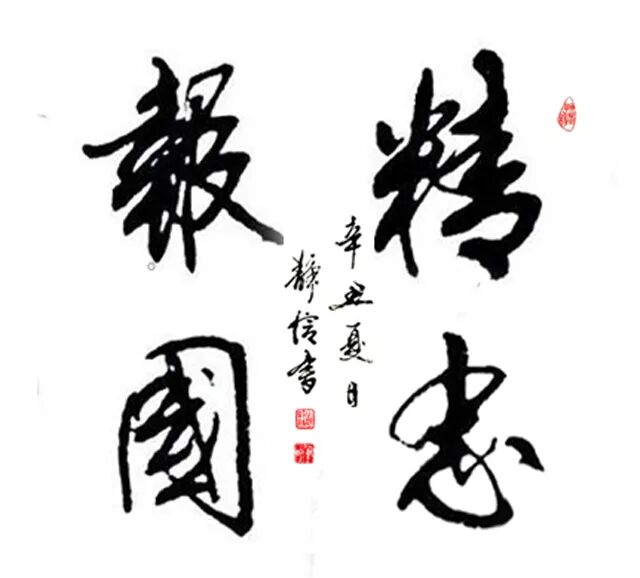 精忠
報國
辛丑夏日
靜信書